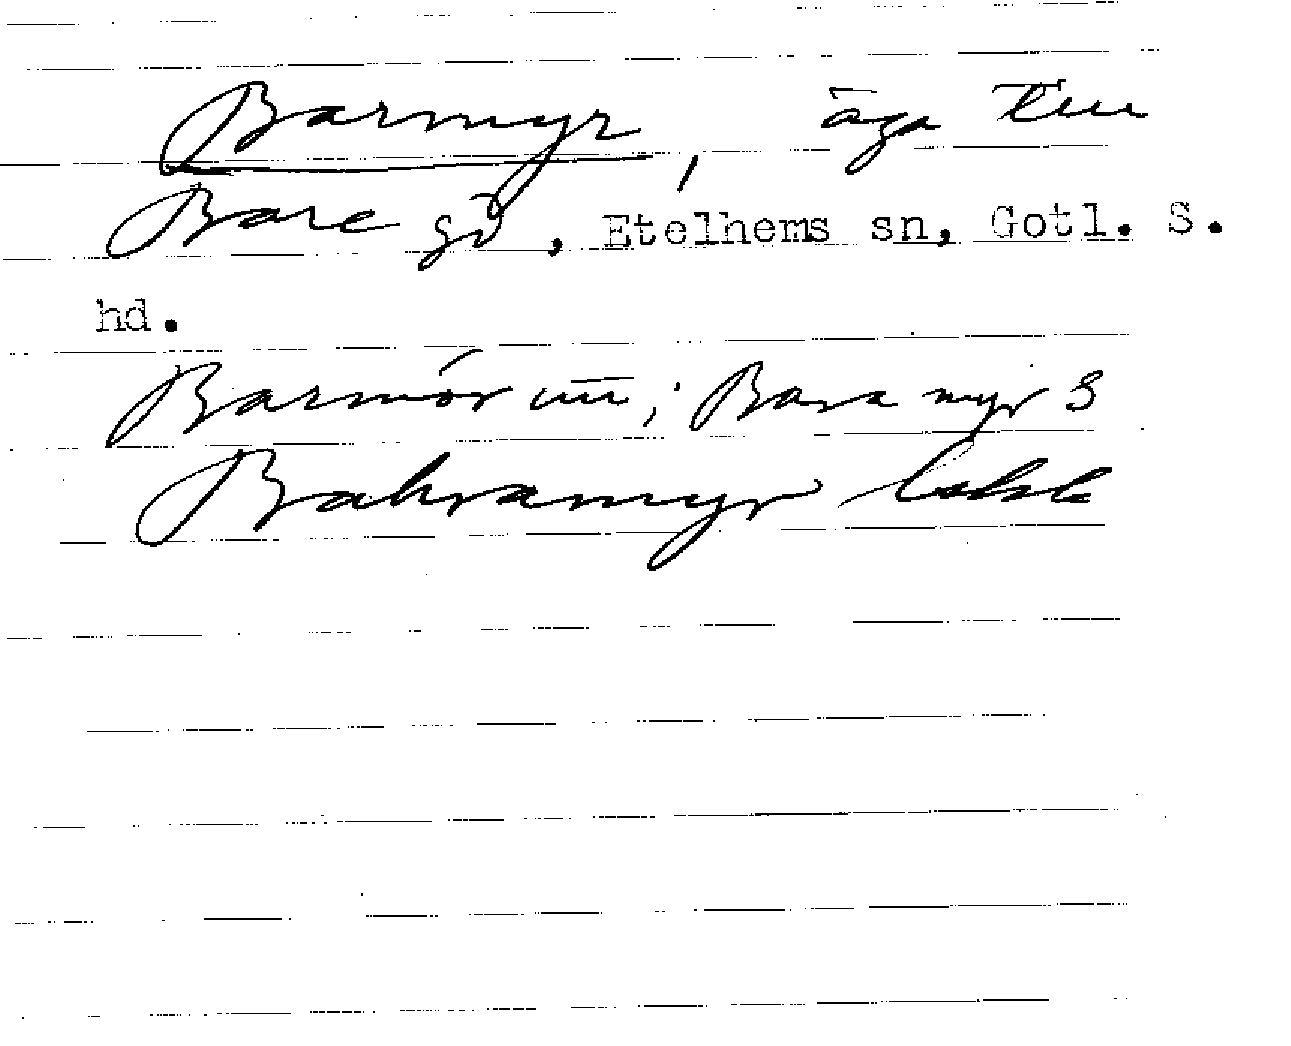 Barmyr, äga till
Bare gd, Etelhems sn, Gotl. S.
hd.
Barmor un; Bara myr S
Bahramyr lskk